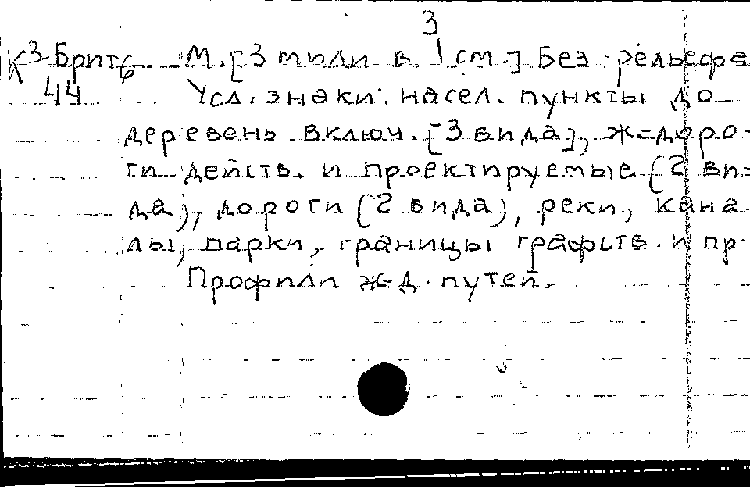 3
К 3-Брит6 М. [3 мили в 1 см.] Без рельефа
44 Усл. знаки: насел. пункты до
деревень включ. [3 вида], ж-доро-
ги действ. и проектируемые (2 ви-
да), дороги (2 вида), реки, кана-
лы, парки, границы графств и пр.
Профили ж-д. путей.